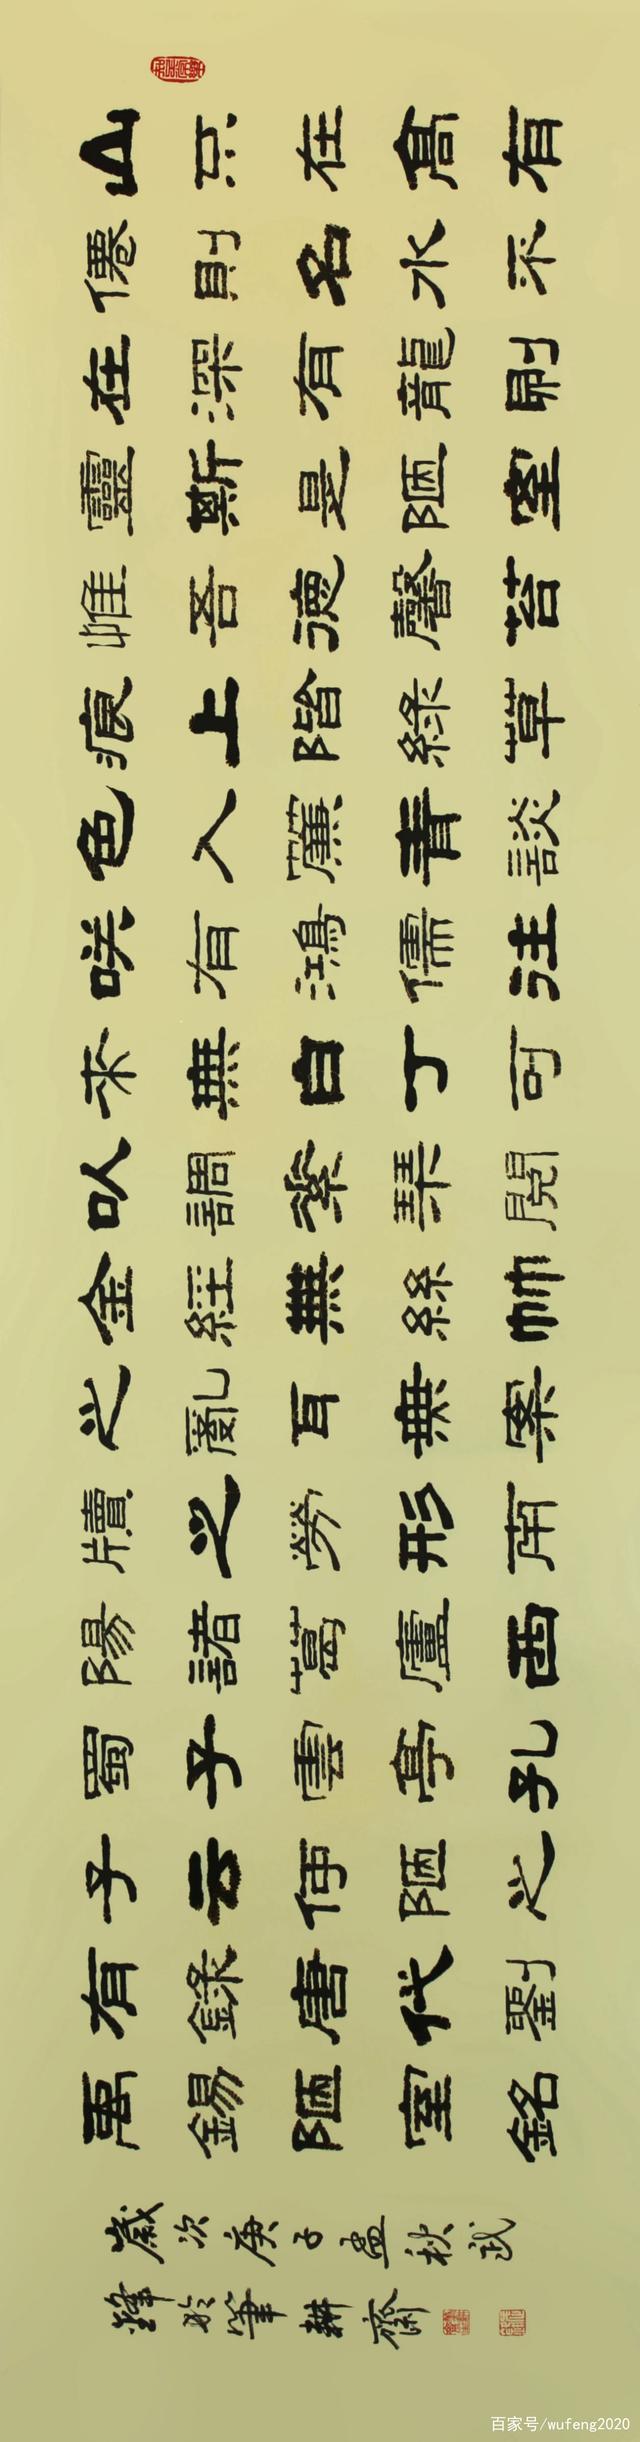 山不在高有
僊則名水不
在深有龍則
靈斯是陋室
惟吾德馨苔
痕上階綠草
色入簾青談
咲有鴻儒往
來無白丁可
以調素琴閱
金經無絲竹
之亂耳無案
牘之勞形南
陽諸葛廬西
蜀子雲亭孔
子云何陋之
有錄唐代劉
禹錫陋室銘
歲次庚子孟秋武
鋒於筆耕齋
百家号/wufeng2020